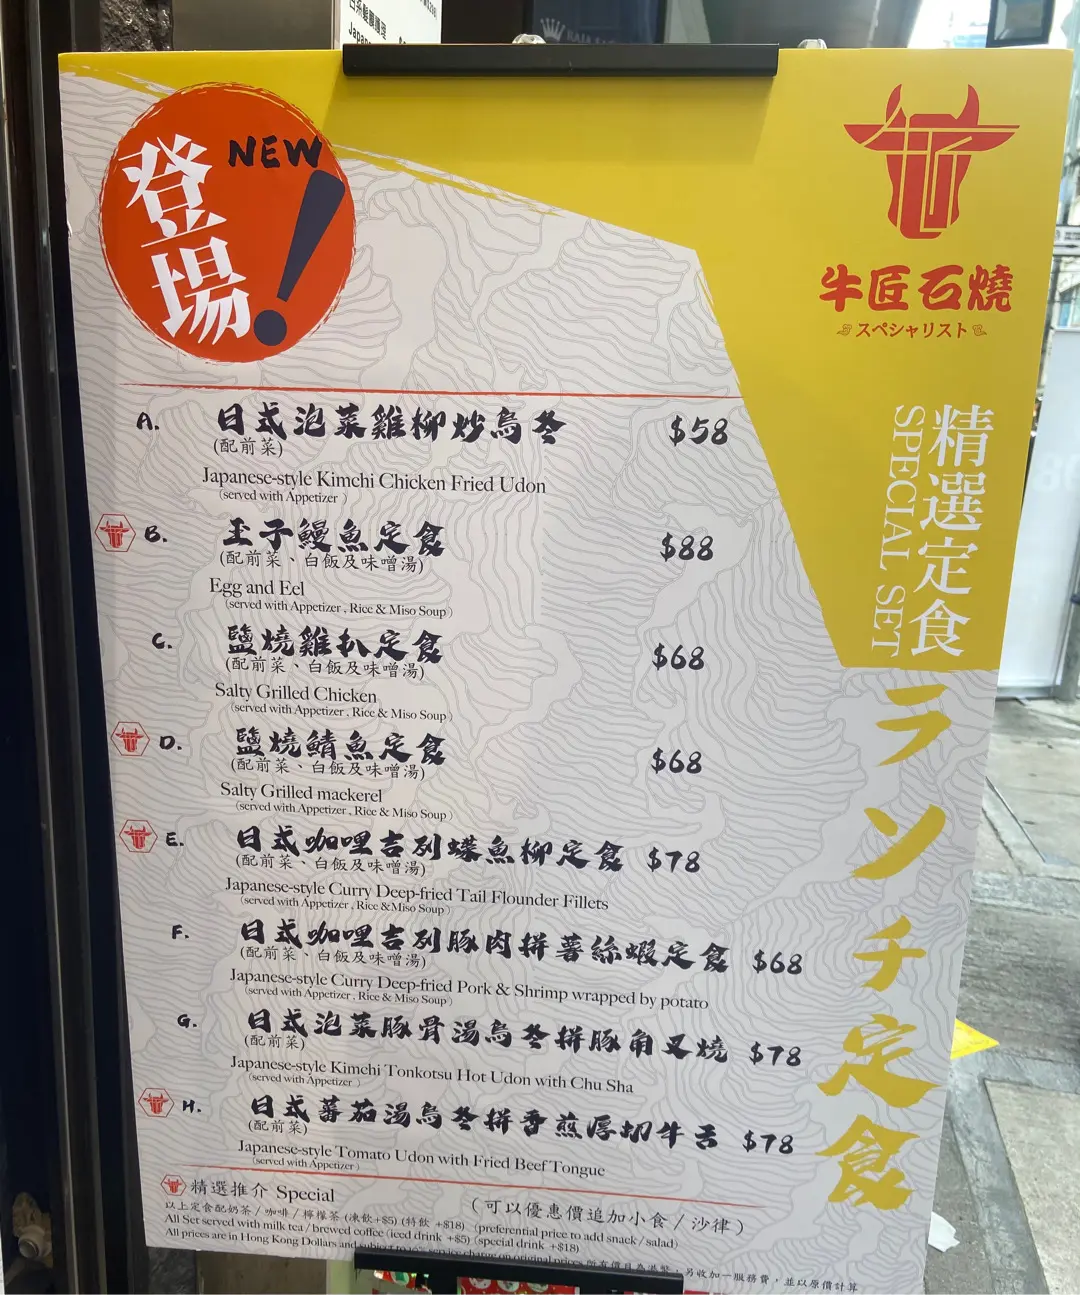 Japan
登場
NEW
!
牛匠石燒
スペシャリスト
精選定食
SPECIAL SET
ランチ定食
A. 日式泡菜雞柳炒烏冬 $58
(配前菜)
Japanese-style Kimchi Chicken Fried Udon
(served with Appetizer )
B. 玉子鰻魚定食 $88
(配前菜、白飯及味噌湯)
Egg and Eel
(served with Appetizer , Rice & Miso Soup )
C. 鹽燒雞扒定食 $68
(配前菜、白飯及味噌湯)
Salty Grilled Chicken
(served with Appetizer , Rice & Miso Soup )
D. 鹽燒鯖魚定食 $68
(配前菜、白飯及味噌湯)
Salty Grilled mackerel
(served with Appetizer , Rice & Miso Soup )
E. 日式咖哩吉列鰈魚柳定食 $78
(配前菜、白飯及味噌湯)
Japanese-style Curry Deep-fried Tail Flounder Fillets
(served with Appetizer , Rice &Miso Soup )
F. 日式咖哩吉列豚肉拼薯絲蝦定食 $68
(配前菜、白飯及味噌湯)
Japanese-style Curry Deep-fried Pork & Shrimp wrapped by potato
(served with Appetizer , Rice & Miso Soup )
G. 日式泡菜豚骨湯烏冬拼豚角叉燒 $78
(配前菜)
Japanese-style Kimchi Tonkotsu Hot Udon with Chu Sha
(served with Appetizer )
H. 日式蕃茄湯烏冬拼香煎厚切牛舌 $78
(配前菜)
Japanese-style Tomato Udon with Fried Beef Tongue
(served with Appetizer )
精選推介 Special (可以優惠價追加小食/沙律)
以上定食配奶茶/咖啡/檸檬茶 (凍飲+$5) (特飲 +$18) (preferential price to add snack/salad)
All Set served with milk tea/brewed coffee (iced drink +$5) (special drink +$18)
All prices are in Hong Kong Dollars and subject to service charge on original prices 所有價目為港幣，另收加一服務費，並以原價計算